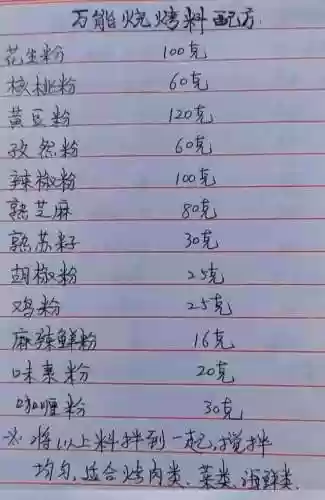 万能烧烤料配方
花生粉 100克
核桃粉 60克
黄豆粉 120克
孜然粉 60克
辣椒粉 100克
熟芝麻 80克
熟苏籽 30克
胡椒粉 25克
鸡粉 25克
麻辣鲜粉 16克
味素粉 20克
咖喱粉 30克
※将以上料拌到一起,搅拌
均匀,适合烤肉类、菜类、海鲜类